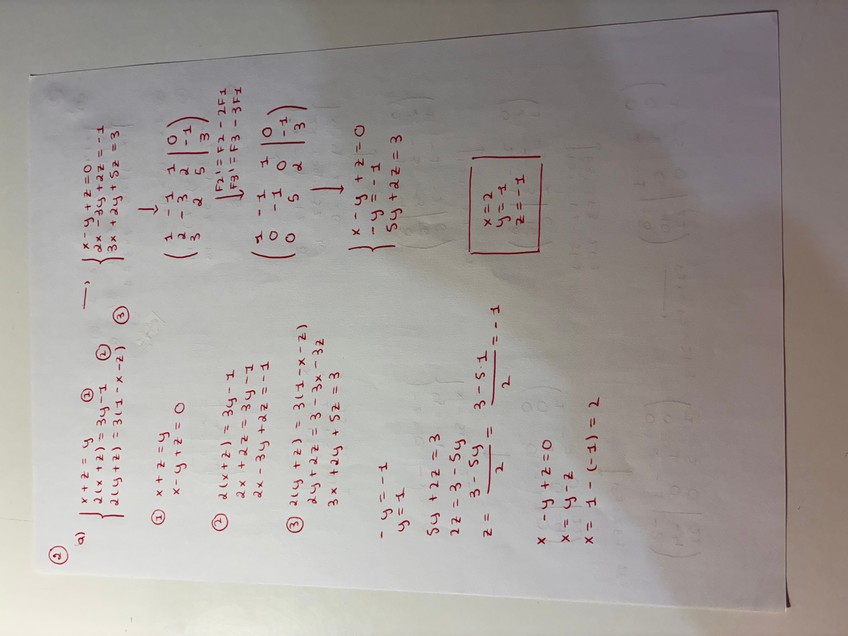 ②
a) { x + z = y ①
2(x + z) = 3y - 1 ②
2(y + z) = 3(1 - x - z) ③
① x + z = y
x - y + z = 0
② 2(x + z) = 3y - 1
2x + 2z = 3y - 1
2x - 3y + 2z = -1
③ 2(y + z) = 3(1 - x - z)
2y + 2z = 3 - 3x - 3z
3x + 2y + 5z = 3
→ { x - y + z = 0
2x - 3y + 2z = -1
3x + 2y + 5z = 3
↓
( 1 -1 1 | 0
2 -3 2 | -1
3 2 5 | 3 )
↓ F2' = F2 - 2F1
F3' = F3 - 3F1
( 1 -1 1 | 0
0 -1 0 | -1
0 5 2 | 3 )
↓
{ x - y + z = 0
-y = -1
5y + 2z = 3
- y = -1
y = 1
5y + 2z = 3
2z = 3 - 5y
z = (3 - 5y)/2 = (3 - 5·1)/2 = -1
x - y + z = 0
x = y - z
x = 1 - (-1) = 2
x = 2
y = 1
z = -1